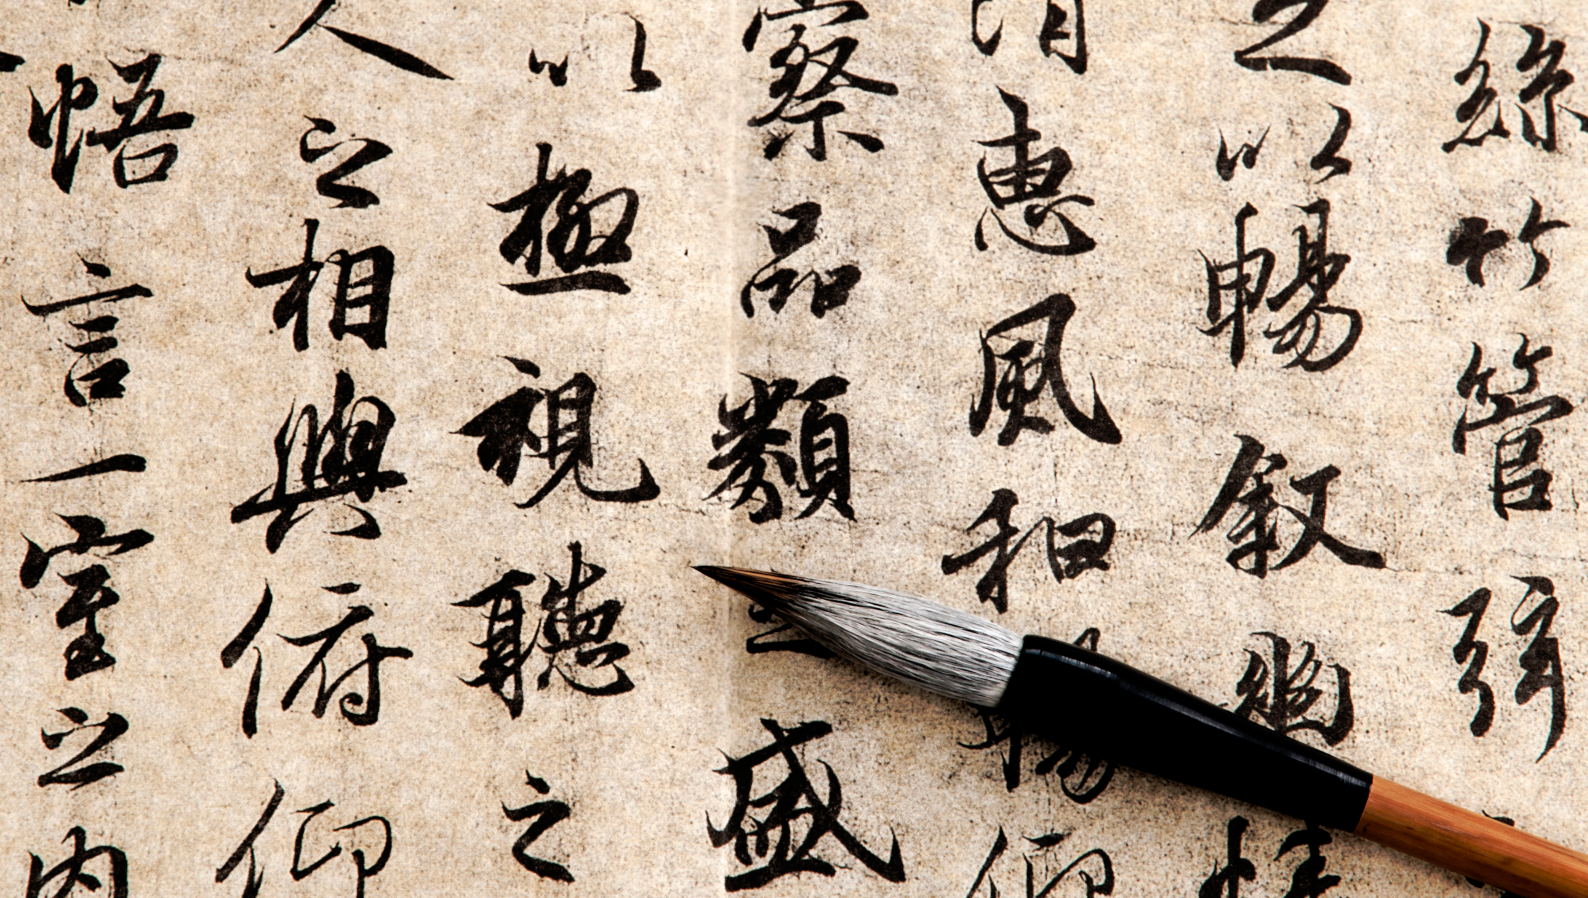 絲竹管弦
之以暢叙幽情
清惠風和暢仰
察品類之盛
以極視聽之
人之相與俯仰
悟言一室之內